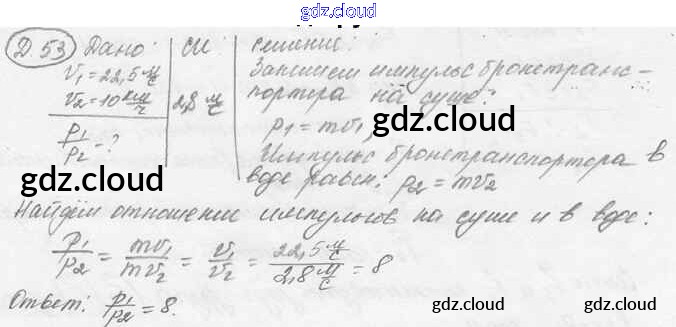 gdz.cloud
Д.53 Дано: СИ: Решение:
v₁=22,5 м/с Запишем импульс бронетранс-
v₂=10 км/ч 2,8 м/с портера на суше:
p₁/p₂ - ? p₁=mv₁,
gdz.cloud
Импульс бронетранспортера в
воде равен: p₂=mv₂
gdz.cloud
Найдём отношение импульсов на суше и в воде:
p₁/p₂ = mv₁/mv₂ = v₁/v₂ = 22,5 м/с / 2,8 м/с = 8
Ответ: p₁/p₂ = 8.
gdz.cloud gdz.cloud